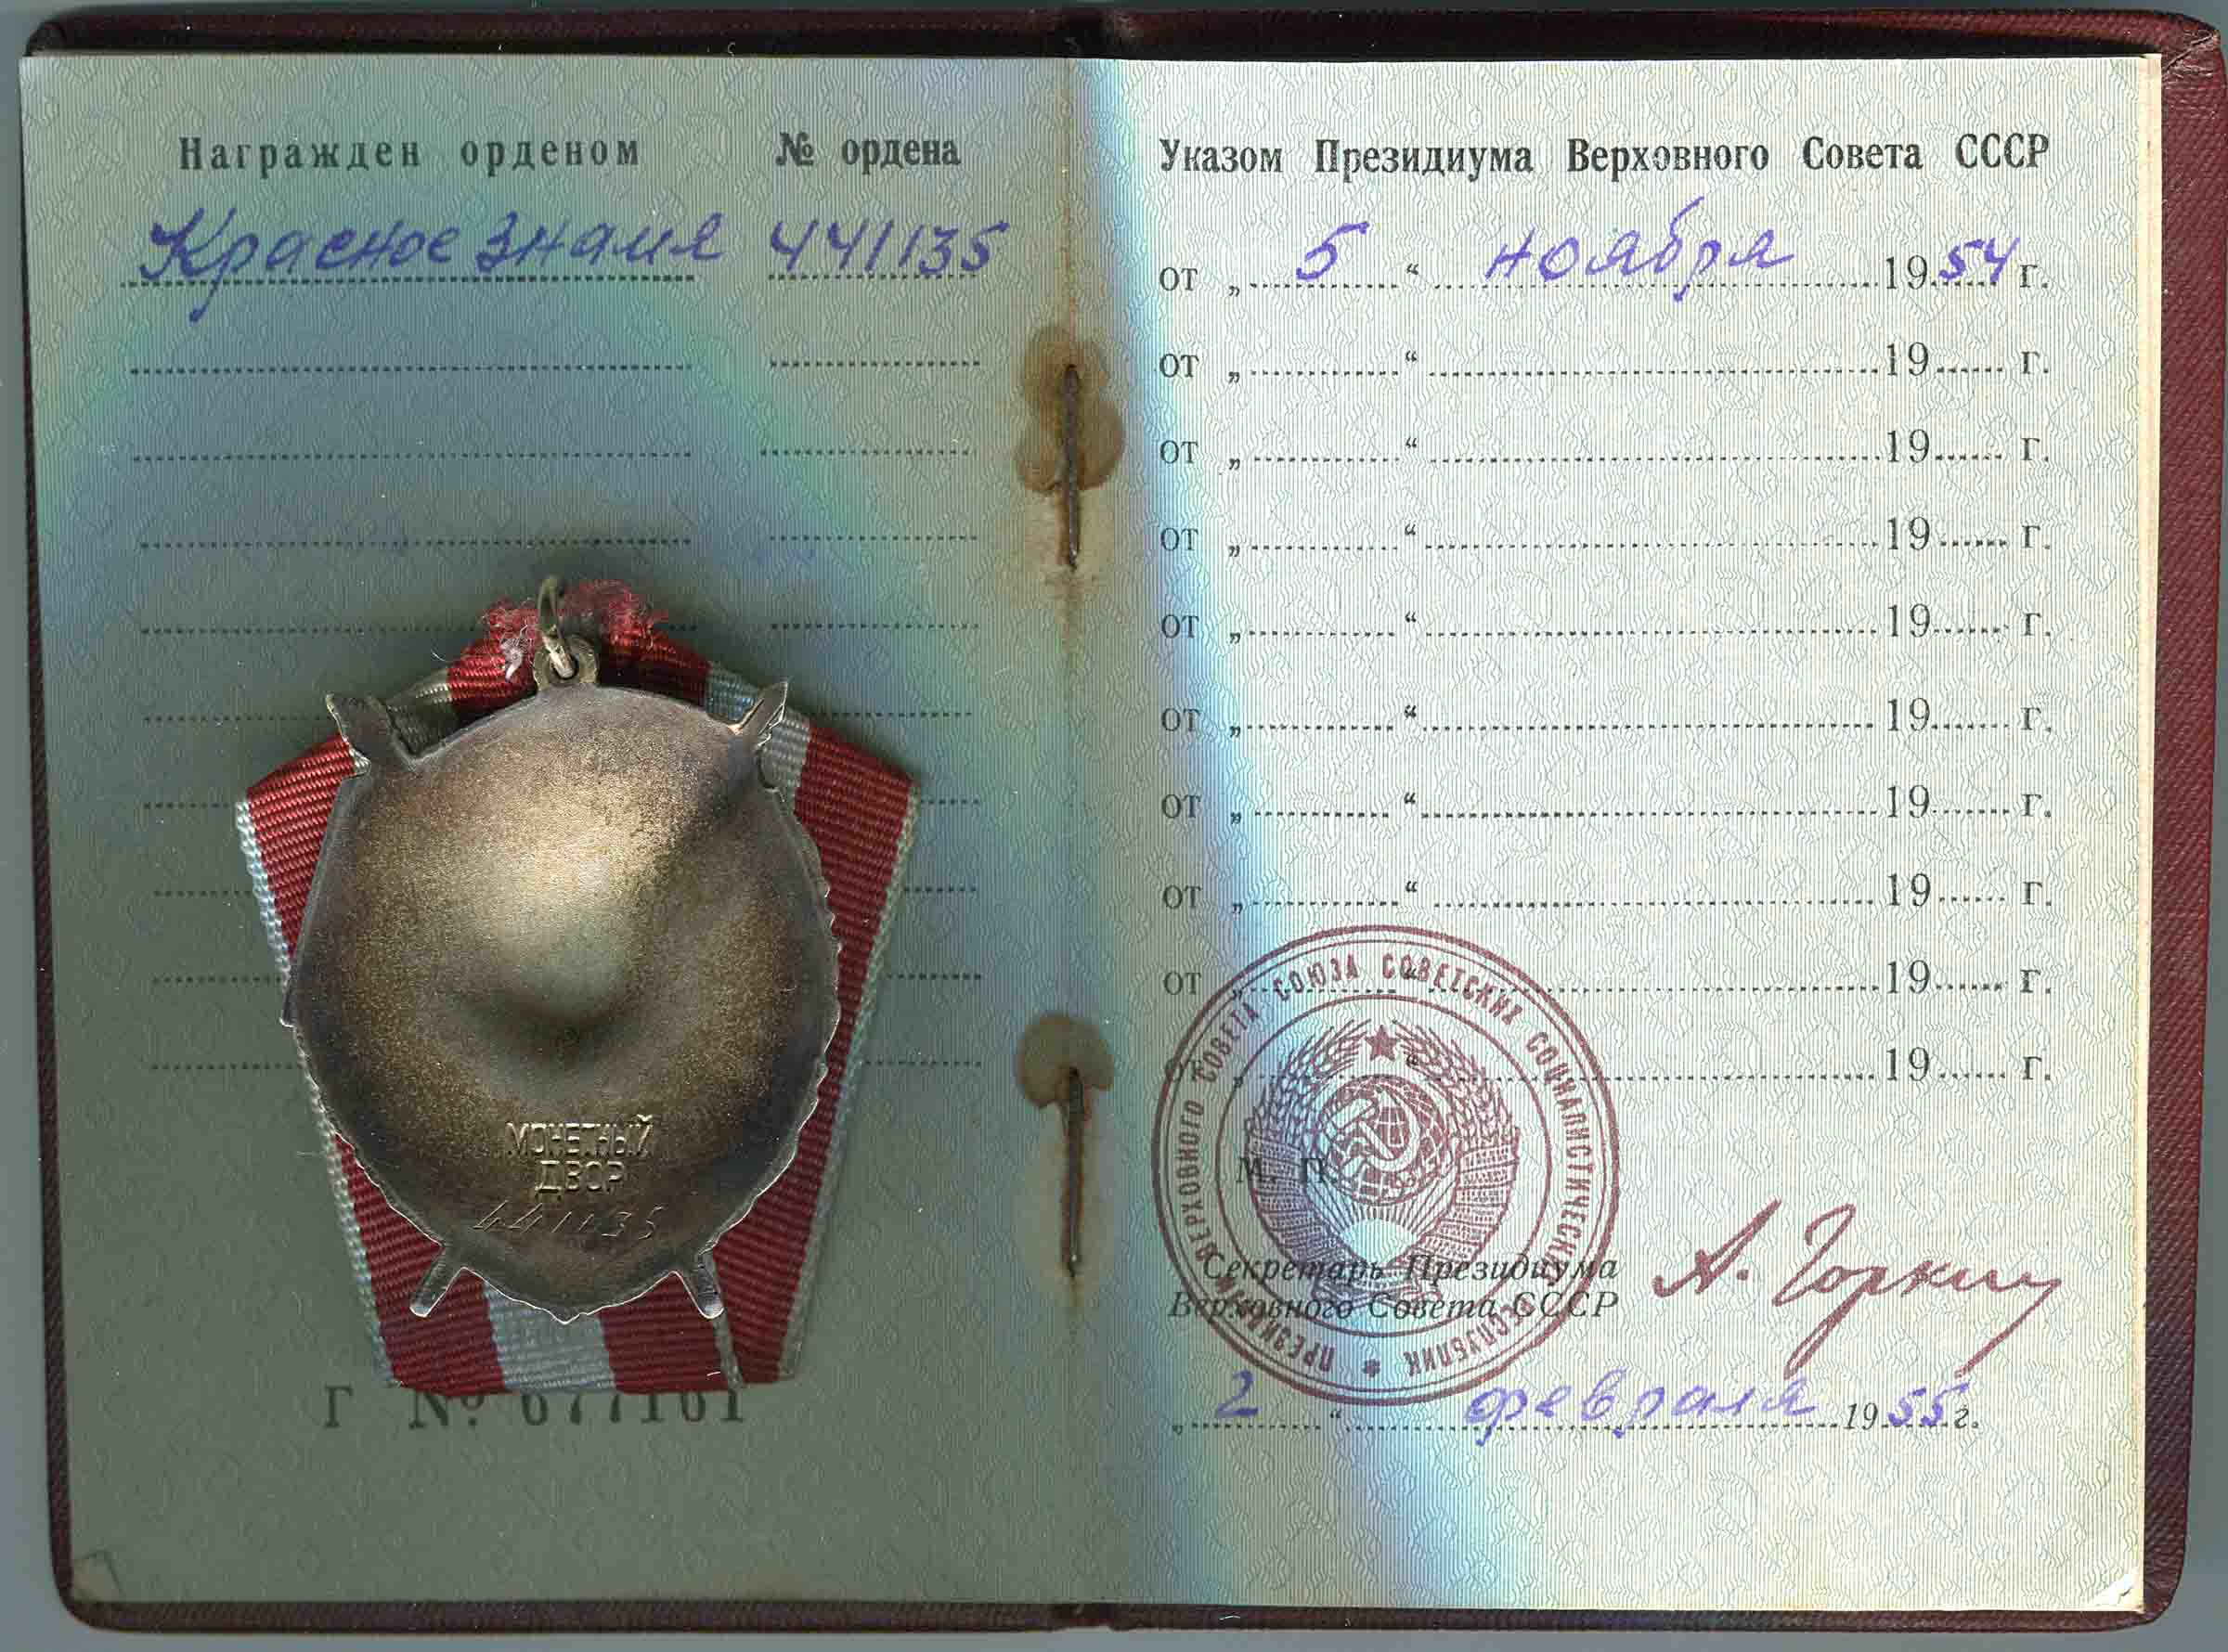 Награжден орденом № ордена
Красное знамя 441135
Г № 677161
МОНЕТНЫЙ
ДВОР
441135
Указом Президиума Верховного Совета СССР
от „ 5 “ ноября 1954 г.
от „ “ 19 г.
от „ “ 19 г.
от „ “ 19 г.
от „ “ 19 г.
от „ “ 19 г.
от „ “ 19 г.
от „ “ 19 г.
от „ “ 19 г.
от „ “ 19 г.
ПРЕЗИДИУМ ВЕРХОВНОГО СОВЕТА СОЮЗА СОВЕТСКИХ СОЦИАЛИСТИЧЕСКИХ РЕСПУБЛИК
М. П.
Секретарь Президиума
Верховного Совета СССР
А. Горкин
„ 2 “ февраля 1955 г.